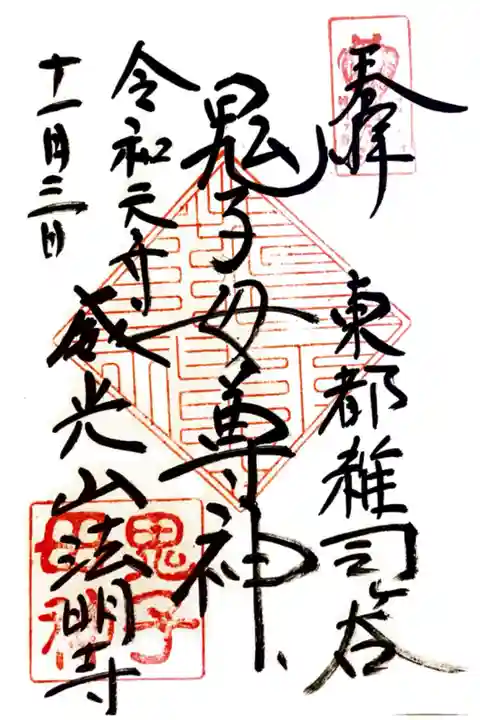 奉拝
東都雑司ヶ谷
鬼子母尊神
令和元年
十一月三日
威光山法明寺
鬼子
母神